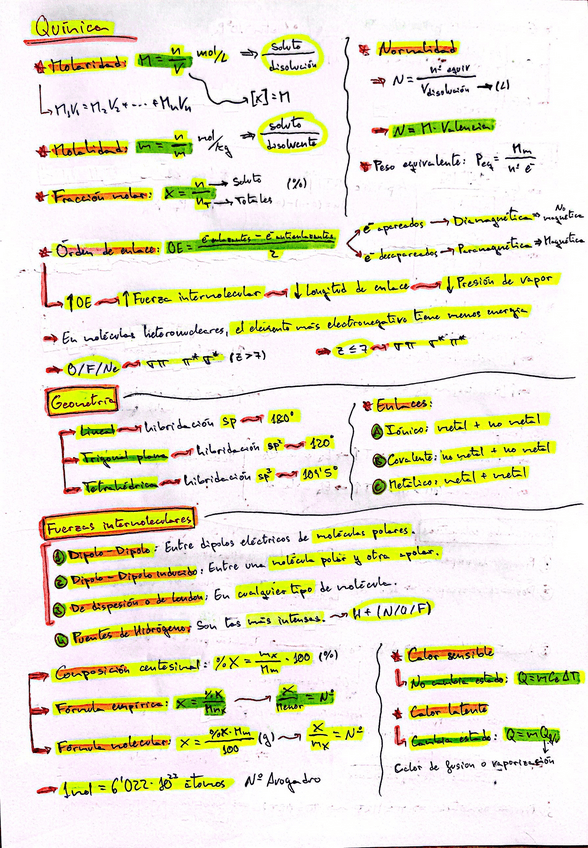 Química
* Molaridad: M = n/V mol/L ⇒ soluto/disolución
↳ M₁V₁ = M₂V₂ + ... + MₙVₙ
[X] = M
* Molalidad: m = n/m mol/kg ⇒ soluto/disolvente
* Fracción molar: X = n/n_T → Soluto (%)
→ Totales
* Normalidad
⇒ N = nº equiv/V disolución → (L)
→ N = M · Valencia
* Peso equivalente: Peq = Mm/nº e⁻
* Órden de enlace: OE = e⁻enlazantes − e⁻antienlazantes/2
e⁻ apareados → Diamagnética ⇒ No magnética
e⁻ desapareados → Paramagnética ⇒ Magnética
↳ ↑OE → ↑Fuerza intermolecular → ↓Longitud de enlace → ↓Presión de vapor
⇒ En moléculas heteronucleares, el elemento más electronegativo tiene menos energía
⇒ O/F/Ne → σπ π*σ* (Z>7) ⇒ Z≤7 → σπ σ*π*
Geometría
Lineal → hibridación sp → 180°
Trigonal plana → hibridación sp² → 120°
Tetraédrica → hibridación sp³ → 109'5°
* Enlaces:
A Iónico: metal + no metal
B Covalente: no metal + no metal
C Metálico: metal + metal
Fuerzas intermoleculares
1 Dipolo-Dipolo: Entre dipolos eléctricos de moléculas polares.
2 Dipolo-Dipolo inducido: Entre una molécula polar y otra apolar.
3 De dispesión o de london: En cualquier tipo de molécula.
4 Puentes de Hidrógeno: Son las más intensas. → H + (N/O/F)
Composición centesimal: %X = mx/Mm · 100 (%)
Fórmula empírica: X = %X/Mmx → X/Menor = Nº
Fórmula molecular: X = %X·Mm/100 (g) → X/mx = Nº
→ 1mol = 6'022·10²³ átomos Nº Avogadro
* Calor sensible
↳ No cambia estado: Q = m Ce ΔT
* Calor latente
↳ Cambia estado: Q = m
Calor de fusion o vaporización